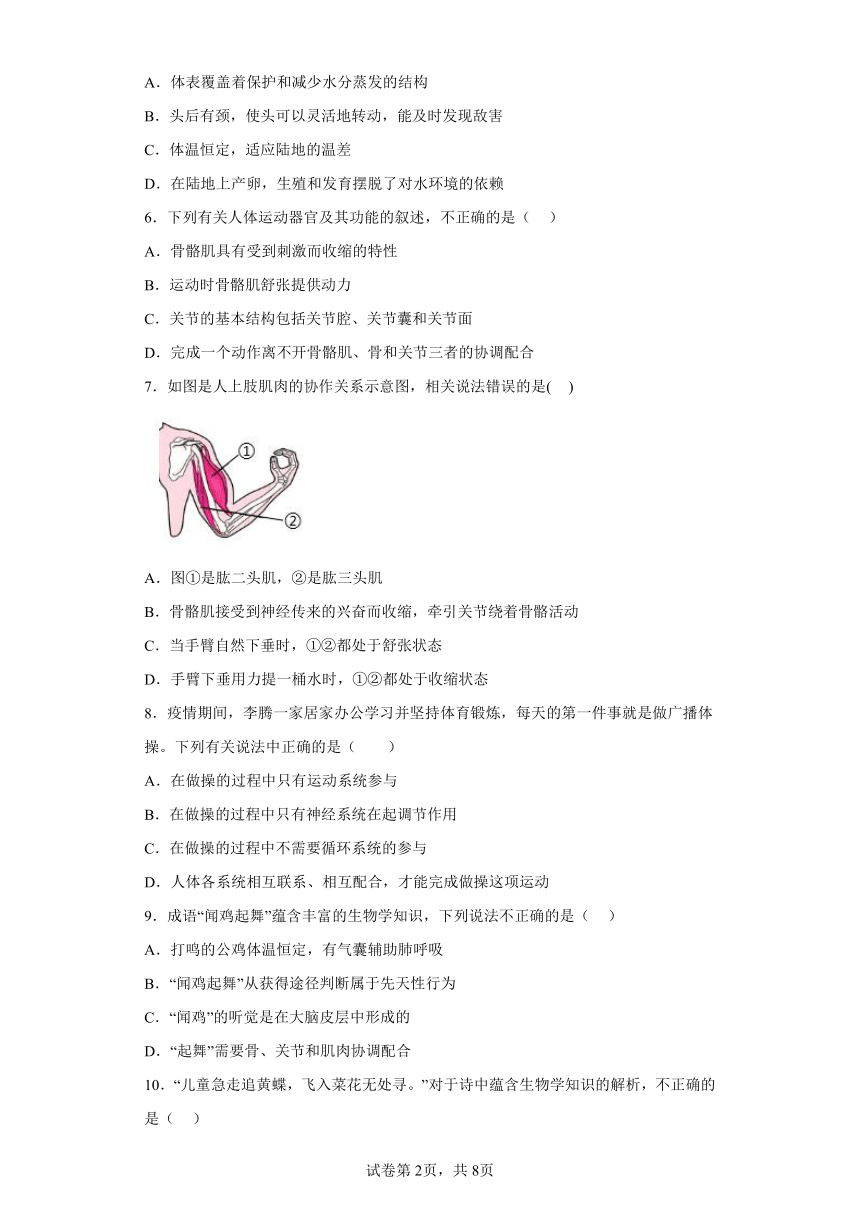 A．体表覆盖着保护和减少水分蒸发的结构
B．头后有颈，使头可以灵活地转动，能及时发现敌害
C．体温恒定，适应陆地的温差
D．在陆地上产卵，生殖和发育摆脱了对水环境的依赖
6．下列有关人体运动器官及其功能的叙述，不正确的是（ ）
A．骨骼肌具有受到刺激而收缩的特性
B．运动时骨骼肌舒张提供动力
C．关节的基本结构包括关节腔、关节囊和关节面
D．完成一个动作离不开骨骼肌、骨和关节三者的协调配合
7．如图是人上肢肌肉的协作关系示意图，相关说法错误的是( )
①
②
A．图①是肱二头肌，②是肱三头肌
B．骨骼肌接受到神经传来的兴奋而收缩，牵引关节绕着骨骼活动
C．当手臂自然下垂时，①②都处于舒张状态
D．手臂下垂用力提一桶水时，①②都处于收缩状态
8．疫情期间，李腾一家居家办公学习并坚持体育锻炼，每天的第一件事就是做广播体
操。下列有关说法中正确的是（ ）
A．在做操的过程中只有运动系统参与
B．在做操的过程中只有神经系统在起调节作用
C．在做操的过程中不需要循环系统的参与
D．人体各系统相互联系、相互配合，才能完成做操这项运动
9．成语“闻鸡起舞”蕴含丰富的生物学知识，下列说法不正确的是（ ）
A．打鸣的公鸡体温恒定，有气囊辅助肺呼吸
B．“闻鸡起舞”从获得途径判断属于先天性行为
C．“闻鸡”的听觉是在大脑皮层中形成的
D．“起舞”需要骨、关节和肌肉协调配合
10．“儿童急走追黄蝶，飞入菜花无处寻。”对于诗中蕴含生物学知识的解析，不正确的
是（ ）
试卷第 2页，共 8页